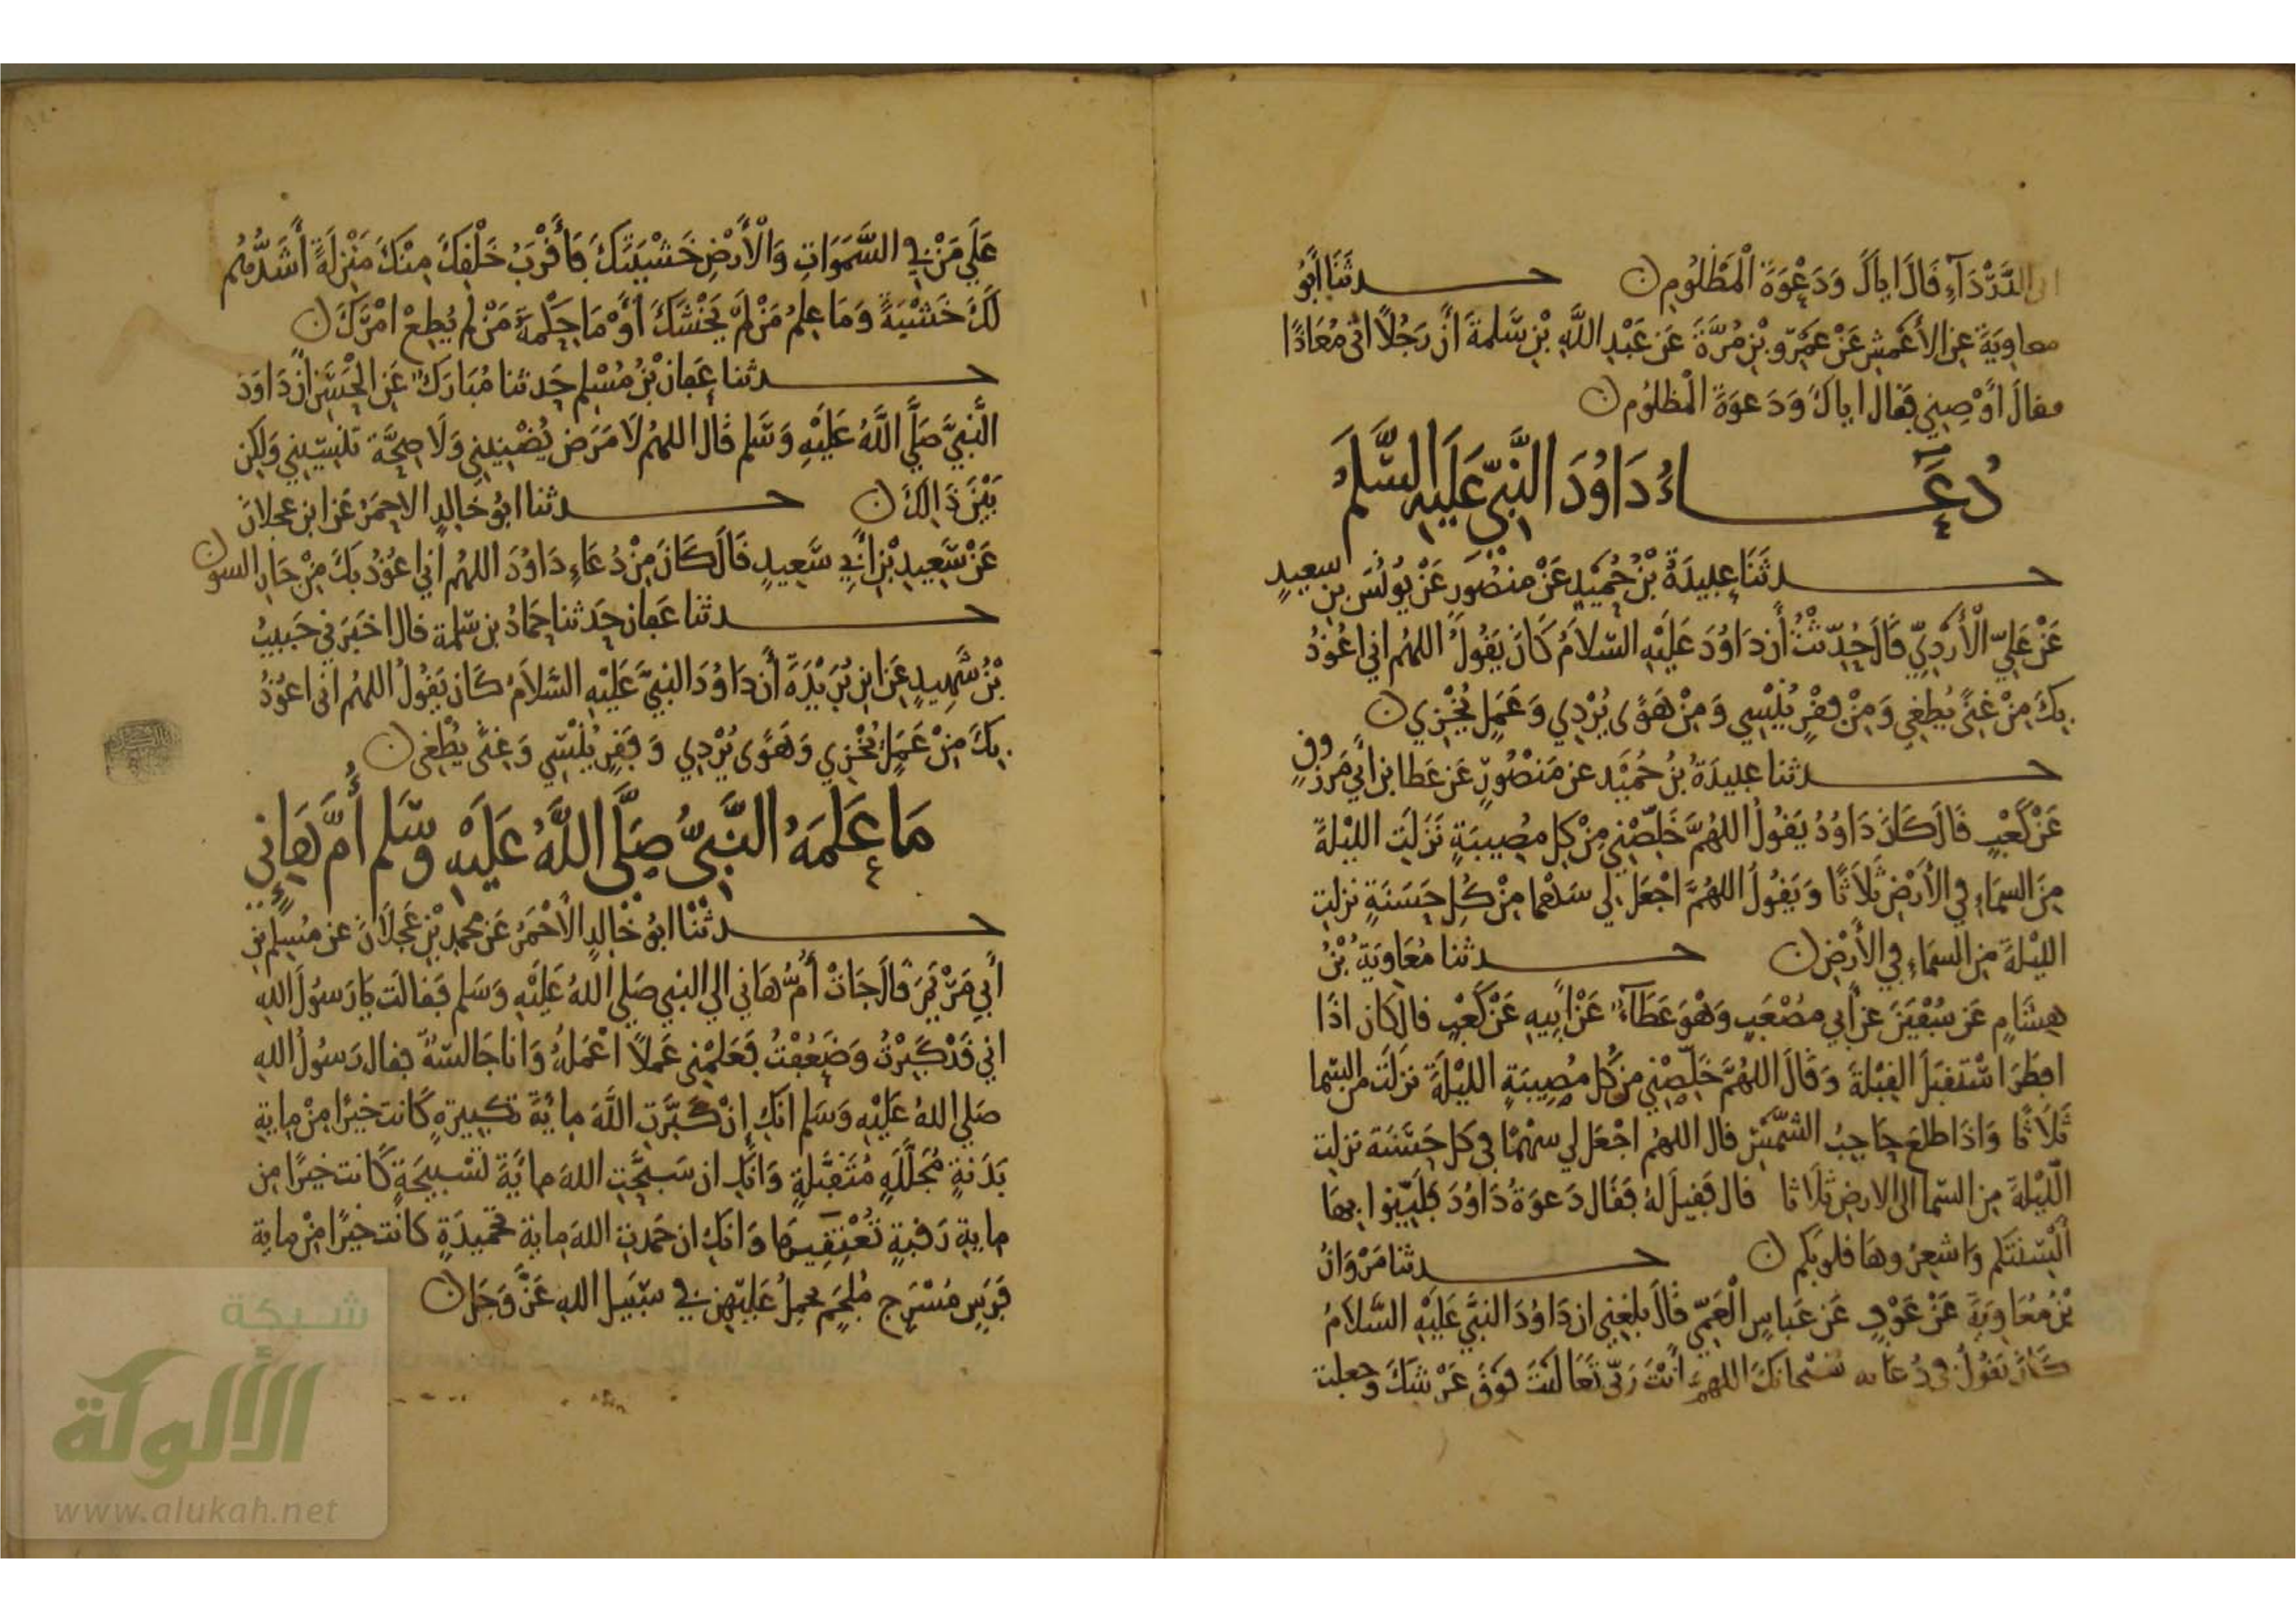 ابي الدَّرْدَآءِ قَالَ اياكَ وَدَعْوَةَ الْمَظْلُومِ ن حدثَنَا أَبُو
معاوِيَةَ عن الأَعْمَشِ عَنْ عَمْرِو بْنِ مُرَّةَ عَن عَبْدِ اللَّهِ بْنِ سَلمةَ أَنَّ رَجُلًا اتى مُعَاذًا
فقالَ أَوْصِنِي فَقَال اياكَ وَدَعوَةَ الْمظلُوم ن
دُعَاءُ دَاوُدَ النَّبِيِّ عَلَيهِ السَّلَمُ
حدثَنَا عَبِيدَةُ بْنُ حُمَيْدٍ عَنْ مَنصُورٍ عَنْ يُونُسَ بنِ سعيدٍ
عَنْ عَلِيٍّ الْأَزْدِيِّ قَالَ حُدِّثْتُ أَن دَاوُدَ عَلَيْهِ السّلَامُ كَانَ يَقُولُ اللهُم اني اعُوذُ
بِكَ مِنْ غِنًى يُطْغِي وَمِنْ فقْرٍ يُنْسِي وَمِنْ هَوًى يُرْدِي وَعَمَلٍ يُخْزِي ن
حدثنا عبيدَةُ بنُ حُمَيْد عن مَنْصُورٍ عَن عَطا بن أَبي مَرْوٰنٍ
عَنْ كَعْبٍ قَالَ كَانَ دَاوُدُ يَقُولُ اللهُمَّ خَلِّصْنِي مِنْ كل مصِيبَةٍ نَزَلَتِ الليْلةَ
مِنَ السمَاءِ فِي الأَرْضِ ثَلَاثًا وَيَقُولُ اللهُمَّ اجْعَل لِي سَهْما مِنْ كُلِّ حَسَنَةٍ نزلت
الليْلةَ مِن السمَاءِ فِي الأَرْضِ ن حدثنا مُعَاوِيَةُ بْنُ
هِشَامٍ عَن سُفْيَنَ عن أَبي مُصْعَبٍ وَهْوَ عَطَآءُ عَنْ أَبِيهِ عَنْ كَعْبٍ قال كان اذَا
افطَرَ اسْتَقبَلَ القِبْلةَ وَقَالَ اللهُمَّ خَلِّصْنِي من كُلِّ مُصِيبَةٍ الليْلَةَ نزَلَتْ من السما
ثَلَاثًا وَاذَا طلعَ حَاجِبُ الشَّمْسِ قال اللهُم اجْعَل لي سهْمًا في كل حَسَنَة نزلت
اللّيْلةَ مِن السّما الى الارض ثلَاثا قال فَقِيلَ لهُ فَقَال دَعوَةُ دَاوُدَ فَلَيِّنوا بهَا
أَلْسِنَتَكم وَاشعِرُوهَا قلوبَكم ن حدثنا مَرْوَانُ
بْنُ مُعَاوِيَةَ عَنْ عَوْفٍ عَن عَباسٍ الْعَمِّي قَالَ بلغني ان دَاوُدَ النبيَّ عَلَيْهِ السَّلَامُ
كَانَ يَقُولُ في دُعَائه سُبْحانَكَ اللهمَّ أَنْتَ رَبي تعَالَيْتَ فَوْقَ عَرْشكَ وَجعلت
عَلَي مَنْ فِي السَّمَوَاتِ وَالْأَرْضِ خَشْيَتَكَ فَأَقْرَبُ خَلْقِكَ مِنْكَ مَنْزِلَةً أَشَدُّهُم
لَكَ خَشْيَةً وَمَا عِلمُ مَنْ لَمْ يَخْشَكَ أَوْ مَا حِكْمةُ مَنْ لَمْ يُطِعْ امْرَكَ ن
حدثنا عَفان بْنُ مُسْلِمٍ حَدثنا مُبَارَكٌ عَنِ الْحَسَنِ أَنَّ دَاوُدَ
النَّبِيَّ صَلَّى اللَّهُ عَلَيْهِ وَسَّلم قَالَ اللهُم لَا مَرَض يُضْنِينِي وَلَا صِحَّة تُنْسِيْنِي وَلكِن
بَيْنَ ذَالِكَ ن حدثنا ابُو خَالِدٍ الاحمَرُ عَن ابن عجلَانَ
عَنْ سَعِيدِ بْنِ أَبِي سَعِيدٍ قَالَ كَانَ مِنْ دُعَاءِ دَاوُدَ اللهُم اني اعُوذُ بكَ مِنْ جَارِ السو ن
حدثنا عَفان حَدثنا حَمَادُ بن سَلمة قال اخبَرَني حَبيبُ
بْنُ شَهِيدٍ عَن ابن بُرَيْدَةَ أَن دَاوُدَ النبيَّ عَلَيْهِ السَّلَامُ كَانَ يَقُولُ اللهُم انى اعُوذُ
بِكَ مِنْ عَمَلٍ يُخْزِي وَهَوًى يُرْدِي وَفَقرٍ يُنْسِي وَغِنًى يُطْغِي ن
مَا عَلمَهُ النَّبيُّ صَلَّى اللَّهُ عَلَيْهِ وسَّلم أُمَّ هَانِي
حدثنَا ابُو خَالِدٍ الْأَحْمَرُ عَن محمدِ بْنِ عَجْلَانَ عن مُسْلِم بنِ
أَبي مَرْيَمَ قَالَ جَاتْ أُمُّ هَانِي الي النبي صَلى اللهُ عَلَيْهِ وَسَلم فَقالَت يَا رَسُولَ اللهِ
اني قَدْ كَبِرْتُ وَضَعُفْتُ فعَلِّمْنِي عَملًا اعْمَلهُ وَانا جَالسَةٌ فقال رَسُولُ اللهِ
صَلي اللهُ عَلَيْهِ وَسَلم انَكِ إِنْ كَبَّرْتِ اللَّهَ مِائَةَ تكبيرةٍ كَانت خيرًا مِنْ مِايةِ
بَدَنةٍ مُجَلّلَةٍ مُتَقَبَّلةٍ وَانَكِ ان سَبحْتِ اللهَ مائَةَ تَسْبيحَةٍ كَانت خيرًا من
مايةِ رَقبةٍ تُعْتِقِيهَا وَانَكِ ان حَمَدتِ اللهَ ماية تحمِيدَةٍ كانَت خيرًا مِنْ مايةِ
فَرَسٍ مُسْرَجٍ مُلجَمٍ يحملُ عَلَيْهِنَّ فِي سَبيل اللهِ عَزَّ وَجَل ن
شبكة
الألوكة
www.alukah.net